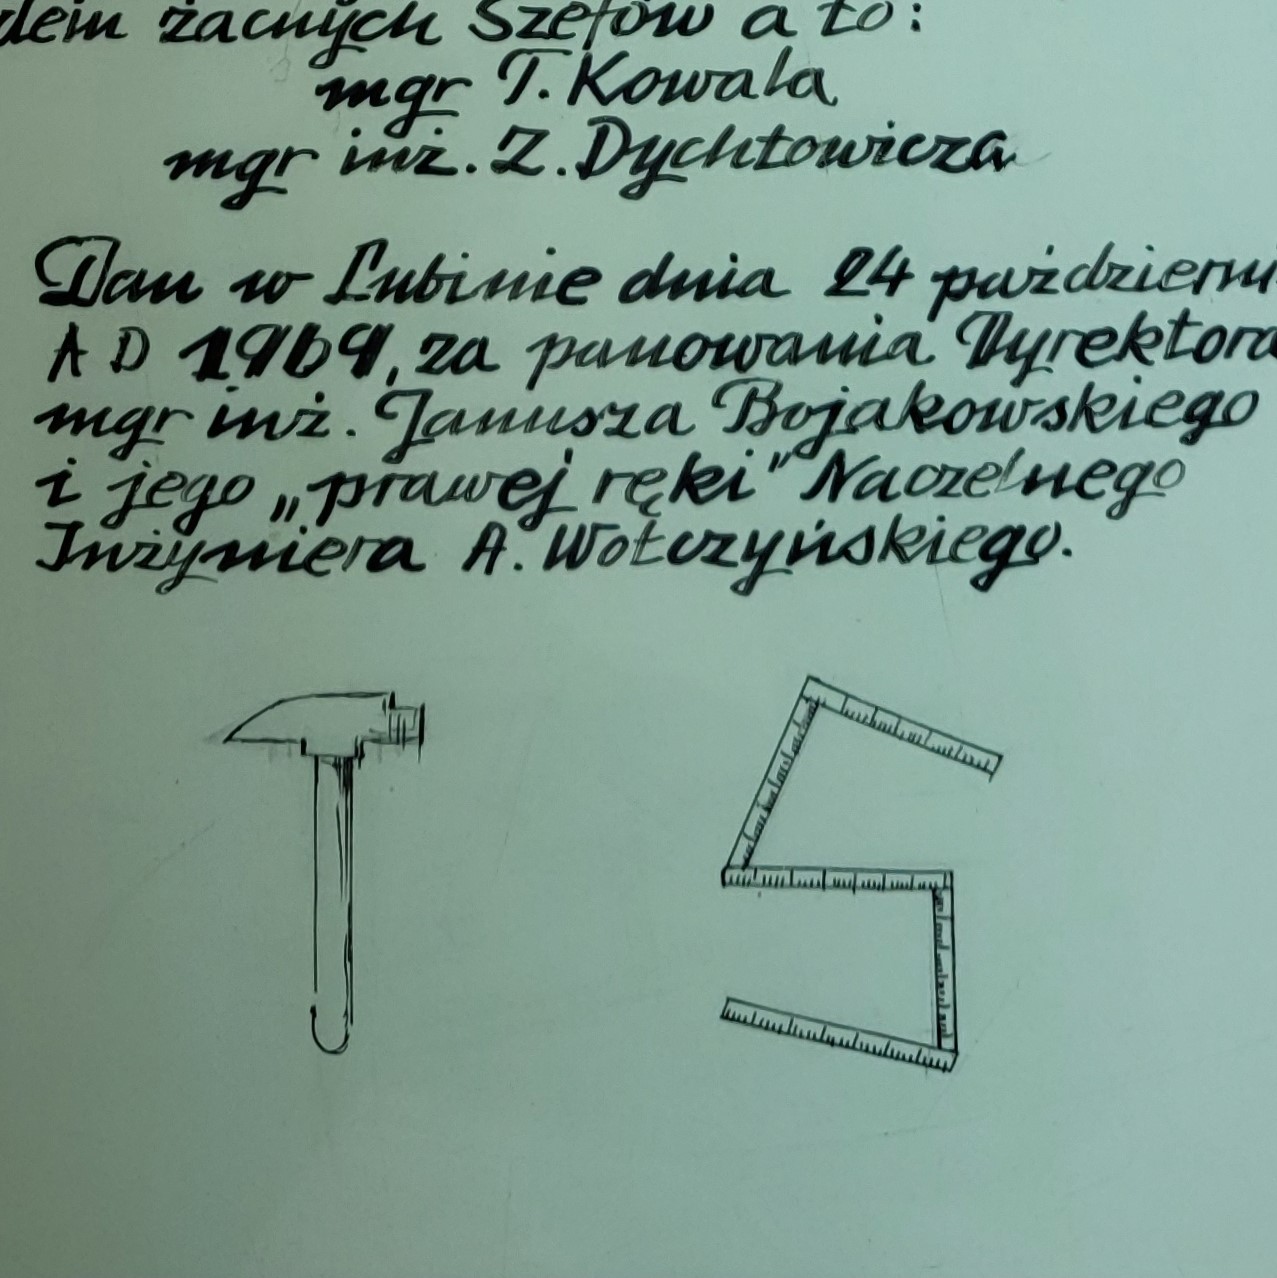 dem zacnych Szefów a to:
mgr T. Kowala
mgr inż. Z. Dychtowicza
Dan w Lubinie dnia 24 październi
A D 1969, za panowania Dyrektora
mgr inż. Janusza Bojakowskiego
i jego „prawej ręki” Naczelnego
Inżyniera A. Wołczyńskiego.